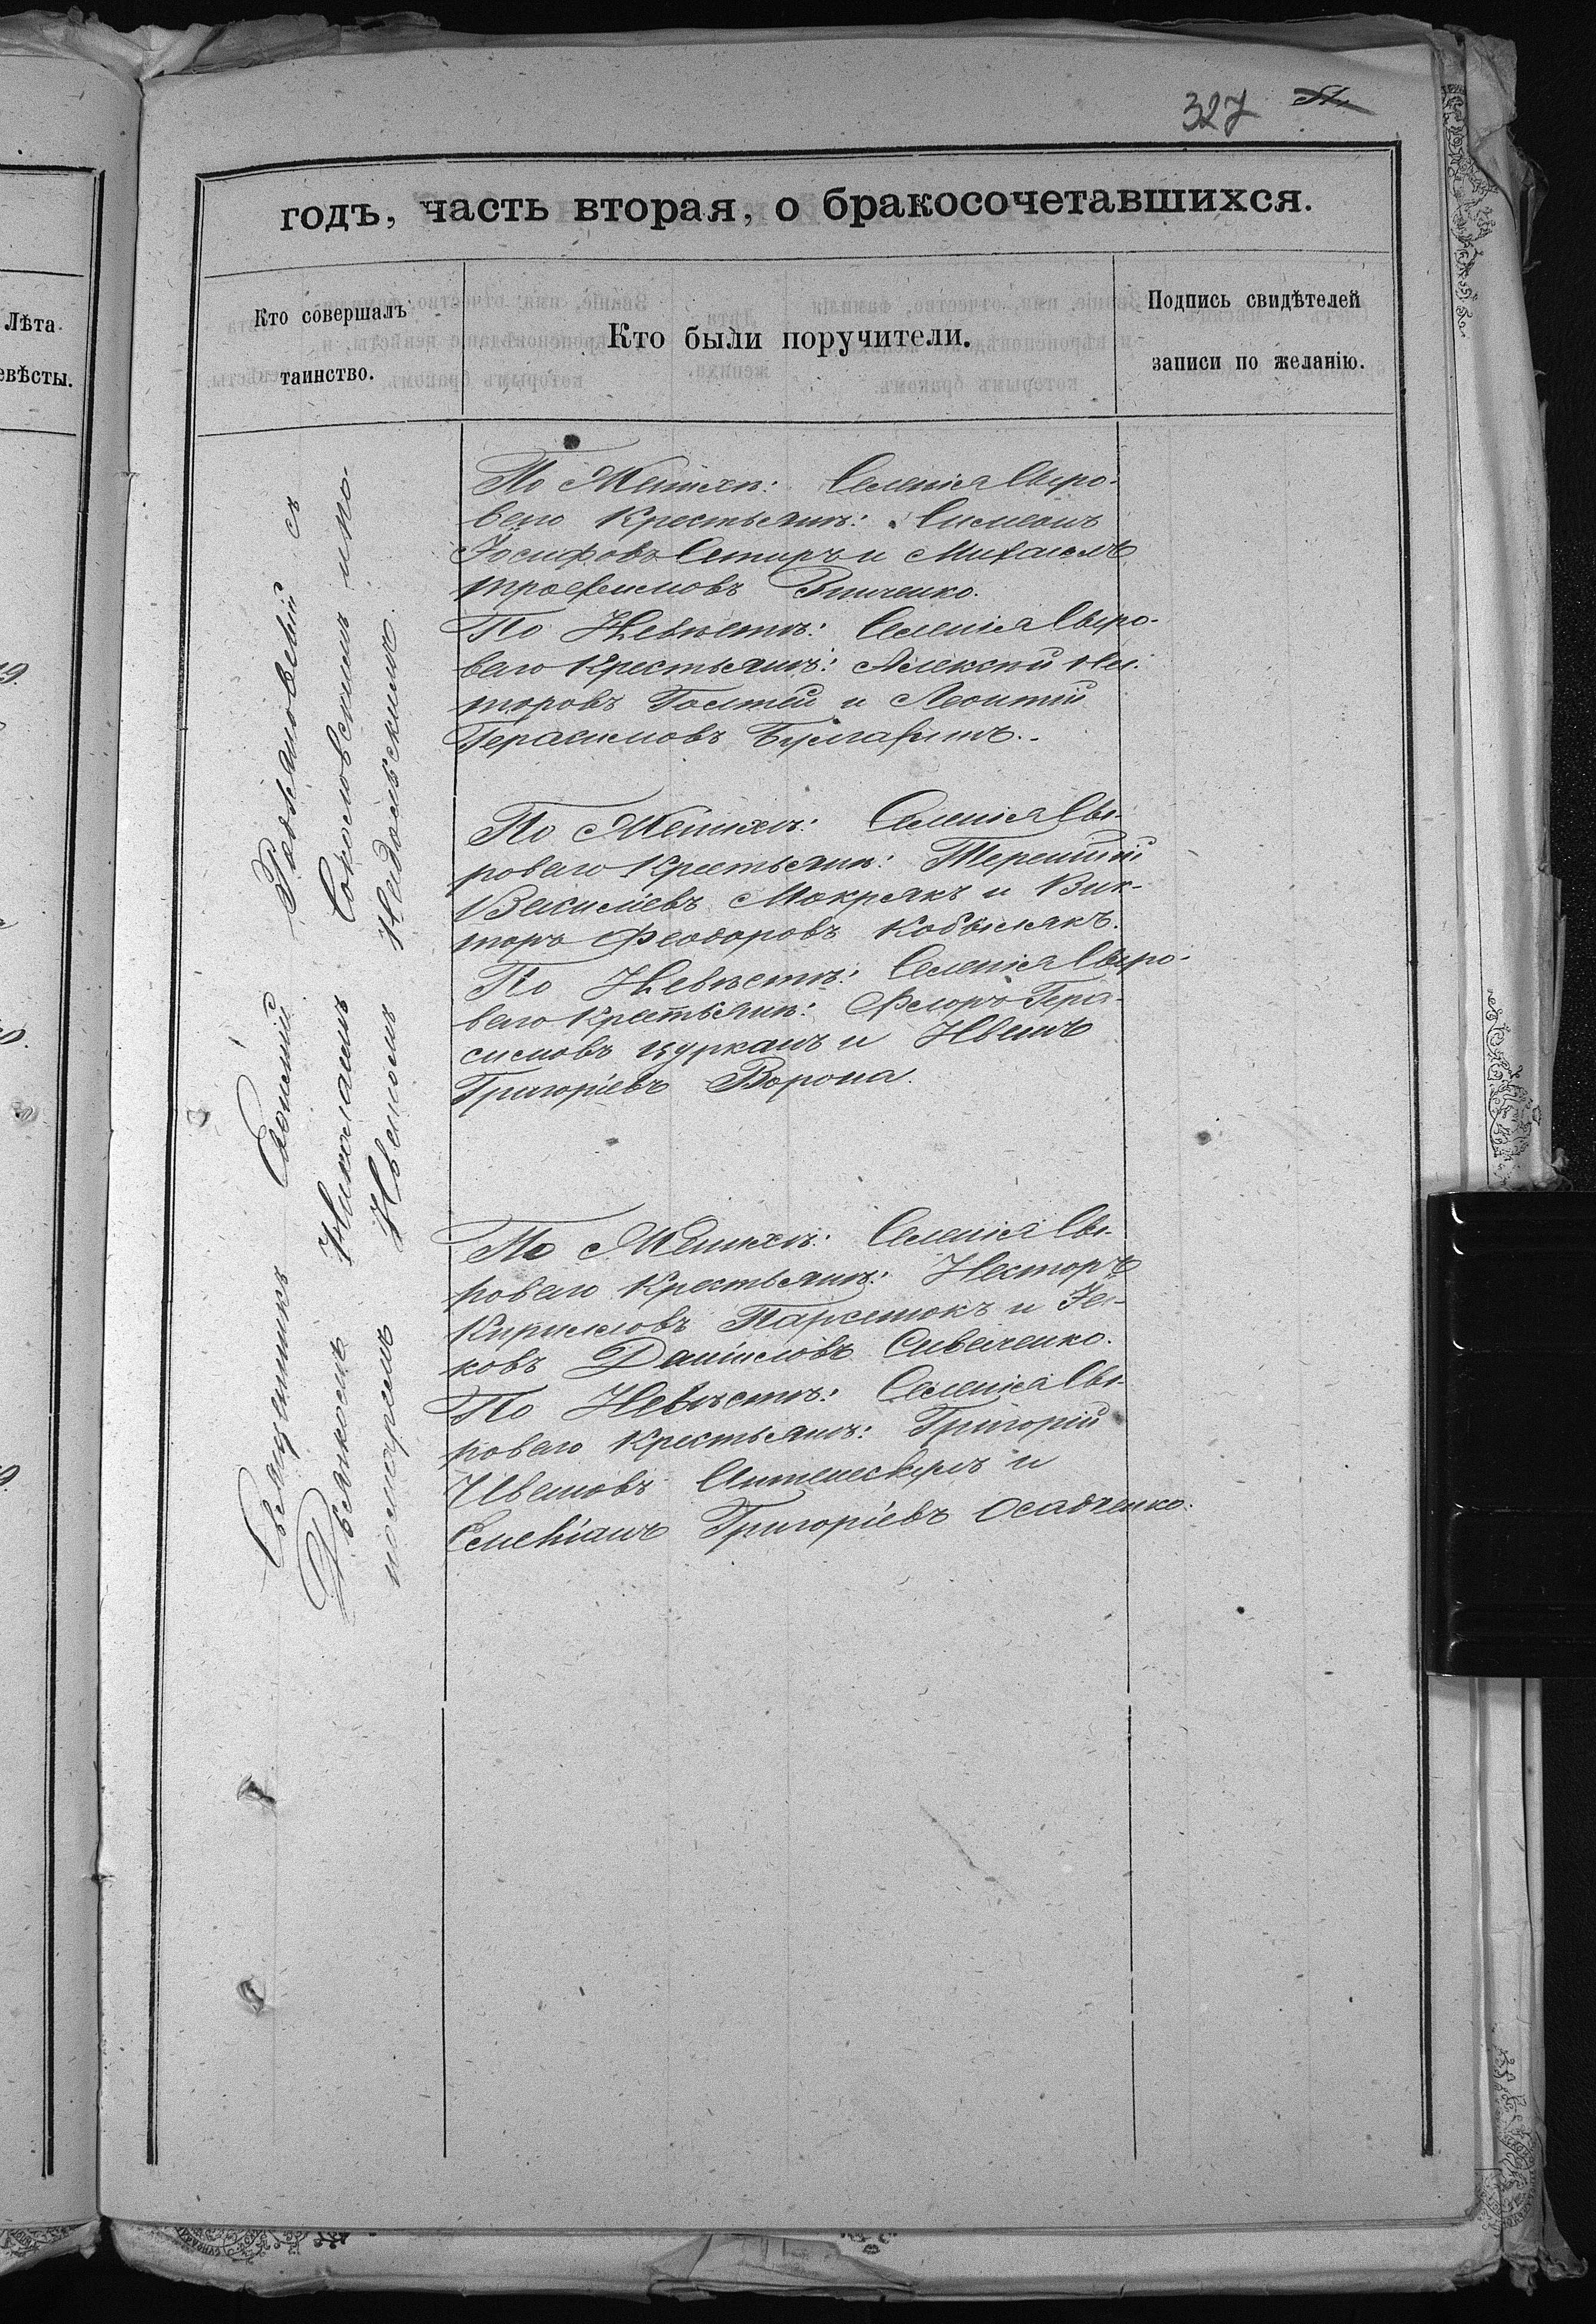 327 51.
годъ, часть вторая, о бракосочетавшихся.
Лѣта
евѣсты.
Кто совершалъ
таинство.
Кто были поручители.
Подпись свидѣтелей
записи по желанію.
Священникъ Родіяновскій съ
Діякономъ Николаемъ Соколовскимъ и по-
номаремъ Иваномъ Надольскимъ.
По Женихѣ: Селенія Сыро-
ваго Крестьяне: Симеонъ
Іосифовъ и Михаилъ
Трофимовъ Зинченко.
По Невѣстѣ: Селенія Сыро-
ваго Крестьяне: Алексѣй
Голтей и Леонтій
Герасимовъ Булгаринъ.
По Женихѣ: Селенія Сы-
роваго Крестьяне: Терентій
Василіевъ Мокрякъ и Вик-
торъ Феодоровъ Кобылякъ.
По Невѣстѣ: Селенія Сыро-
ваго Крестьяне: Флоръ Гера-
симовъ Цурканъ и Иванъ
Григоріевъ Ворона.
По Женихѣ: Селенія Сы-
роваго Крестьяне: Несторъ
Кирилловъ и Іа-
ковъ Даніиловъ Сиваченко.
По Невѣстѣ: Селенія Сы-
роваго Крестьяне: Григорій
Ивановъ и
Григоріевъ Осадченко.